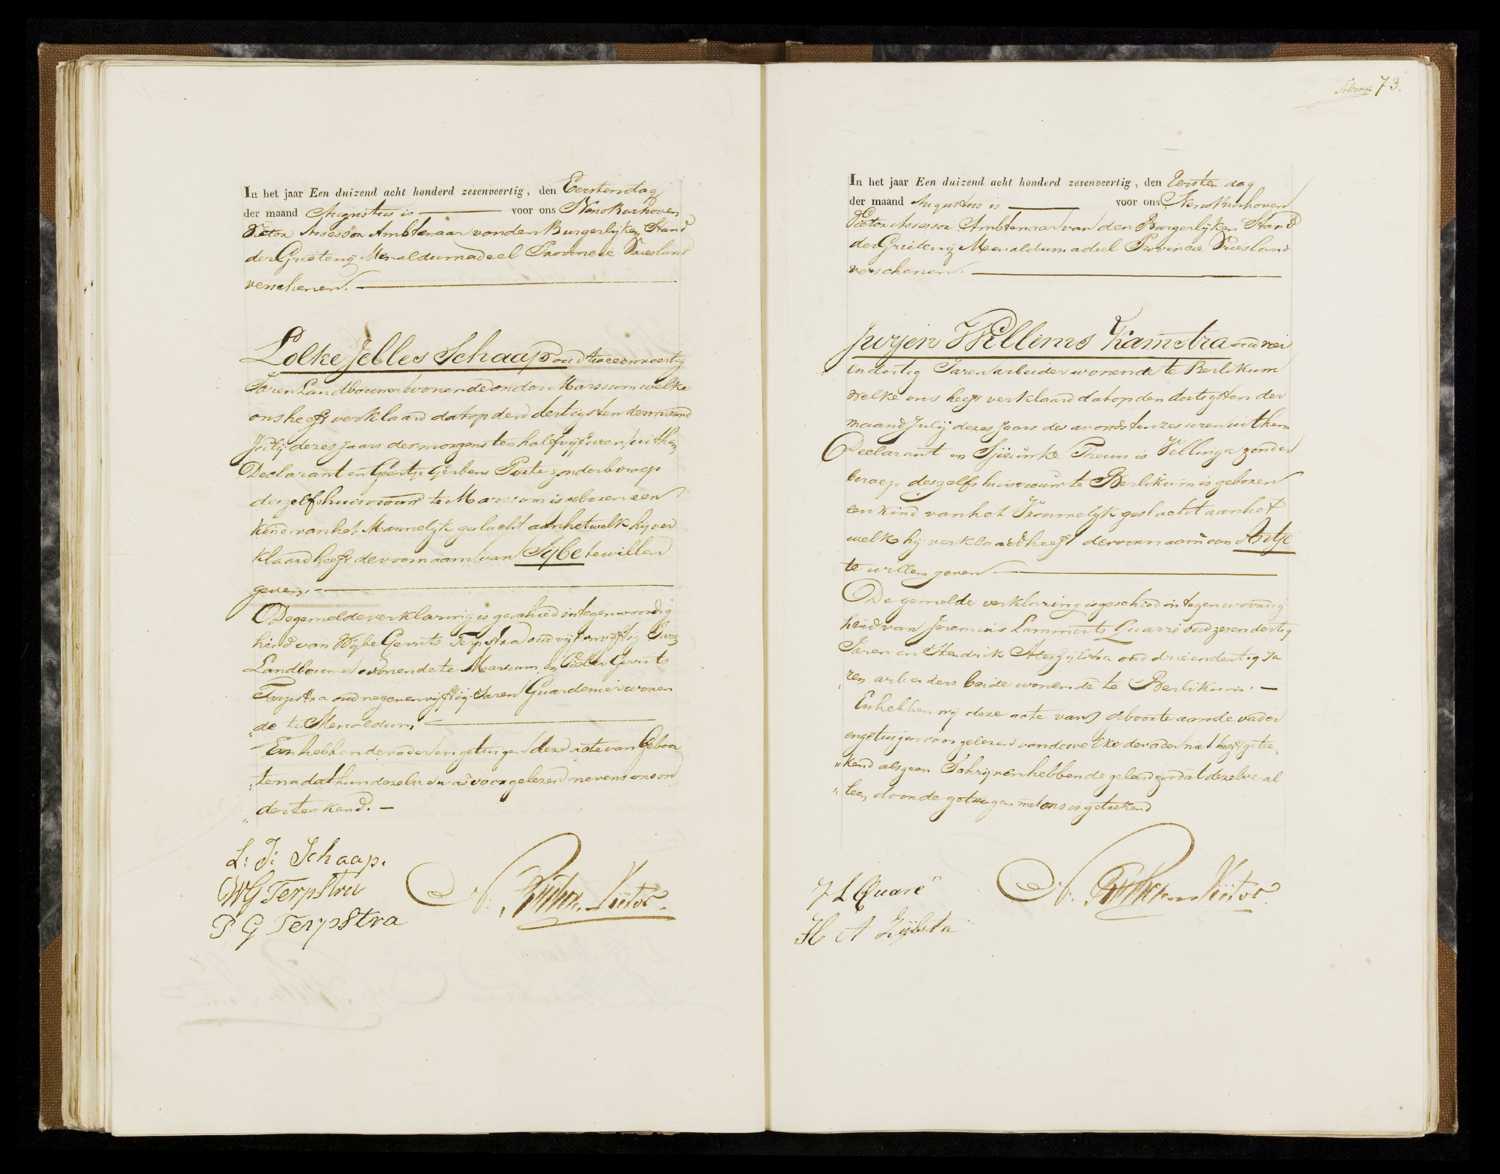 In het jaar Een duizend acht honderd zesenveertig, den Eersten dag
der maand Augustus is voor ons Nanno Berkhoven
Vietor Assessor Ambtenaar van den Burgerlijken Stand
der Grietenij Menaldumadeel Provincie Vriesland
verschenen.
Lolke Jelles Schaap oud twee en veertig
Jaren Landbouwer wonende onder Marssum welke
ons heeft verklaard dat op den dertigsten der maand
Julij dezes jaars des morgens ten half vijf uren, uit hem
Declarant en Geertje Gerbens zonder beroep
deszelfs huisvrouw te Marssum is geboren een
kind van het Mannelijk geslacht aan hetwelk hij ver
klaard heeft de voornaam van Sijbe te willen
geven.
De gemelde verklaring is geschied in tegenwoordig
heid van Wijbe Gerrits Terpstra oud vijf en vijftig Jaren
Landbouwer wonende te Marssum en Pieter Gerrits
Terpstra oud negen en vijftig Jaren Guardenier wonen
de te Menaldum.
En hebben de vader en getuigen deze acte van Geboor
te nadat hun dezelve was voorgelezen nevens ons on
derteekend. —
L: J: Schaap.
WG Terpstra
P G Terpstra
N. Vietor.
73.
In het jaar Een duizend acht honderd zesenveertig, den Eersten dag
der maand Augustus is voor ons Nanno Berkhoven
Vietor Assessor Ambtenaar van den Burgerlijken Stand
der Grietenij Menaldumadeel Provincie Vriesland
verschenen.
Jurjen Willems Kamstra oud vier
en dertig Jaren arbeider wonende te Berlikum
welke ons heeft verklaard dat op den dertigsten der
maand Julij dezes Jaars des avonds ten zes uren uit hem
Declarant en Sjieuwke Vellinga zonder
beroep deszelfs huisvrouw te Berlikum is geboren
een kind van het Vrouwelijk geslacht aan het
welk hij verklaard heeft de voornaam van Antje
te willen geven
De gemelde verklaring is geschied in tegenwoordig
heid van Jeremias Lammerts Quarré oud zes en dertig
Jaren en Hendrik Zijlstra oud drie en dertig Ja
ren arbeiders beide wonende te Berlikum. —
En hebben wij deze acte van Geboorte aan de vader
en getuigen voorgelezen van dewelke de vader niet heeft getee
kend als geen Schrijven hebbende geleerd zoodat dezelve al
leen door de getuigen met ons is geteekend
J L Quaré
H A Zijlstra
N. Vietor.